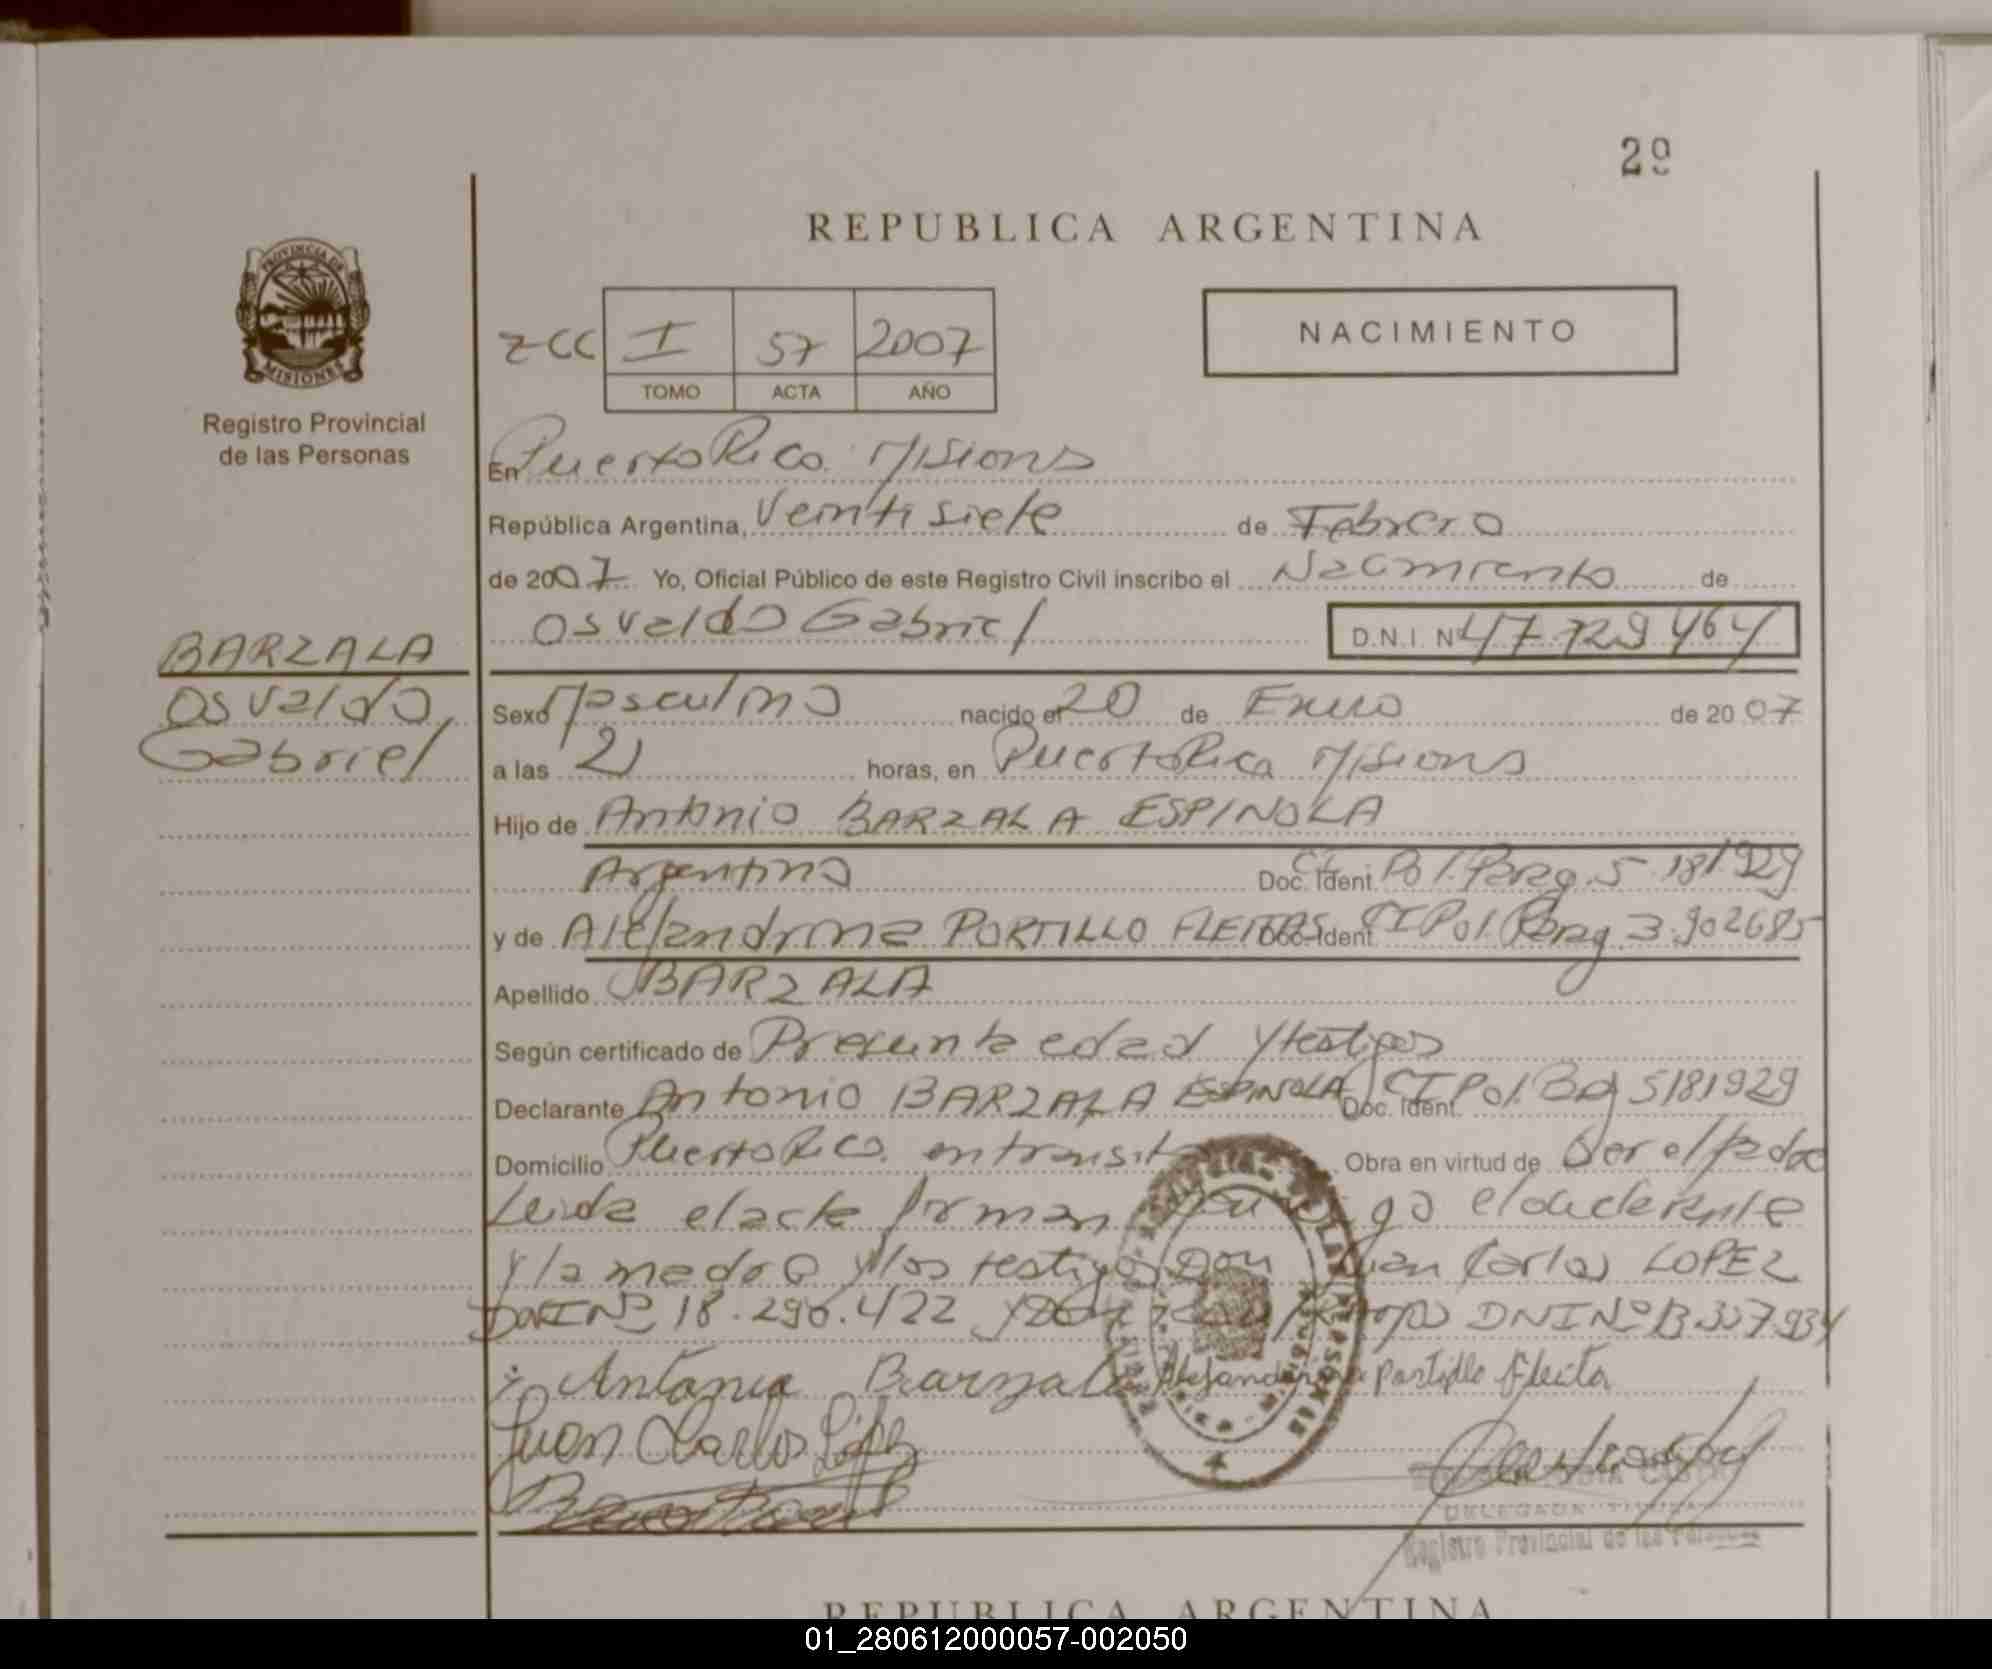 29
REPUBLICA ARGENTINA
PROVINCIA DE
MISIONES
Registro Provincial
de las Personas
ZCC I 57 2007
TOMO ACTA AÑO
NACIMIENTO
En Puerto Rico. Misiones
República Argentina, Veintisiete de Febrero
de 2007 Yo, Oficial Público de este Registro Civil inscribo el Nacimiento de
Osvaldo Gabriel D.N.I. Nº 47.729464
BARZALA
Osvaldo,
Gabriel
Sexo Masculino nacido el 20 de Enero de 2007
a las 21 horas, en Puerto Rico Misiones
Hijo de Antonio BARZALA ESPINOLA
Argentino Doc. Ident. CI Pol. Parag. 5 181929
y de Alejandrina PORTILLO FLEITAS Doc. Ident. CI Pol. Parag 3.902685
Apellido BARZALA
Según certificado de Presunta edad y testigos
Declarante Antonio BARZALA ESPINOLA Doc. Ident. CI Pol. 5181929
Domicilio Puerto Rico. en transito Obra en virtud de Ser el padre
Leida el acta firman go el declarante
y la madre y los testigos Don Juan Carlos LOPEZ
DNI Nº 18.296.422 y Don DNI Nº 13.337.934
Antonio Barzala Alejandrina portillo fleita
Juan Carlos López
Registro Provincial de las Personas
REPUBLICA ARGENTINA
01_280612000057-002050